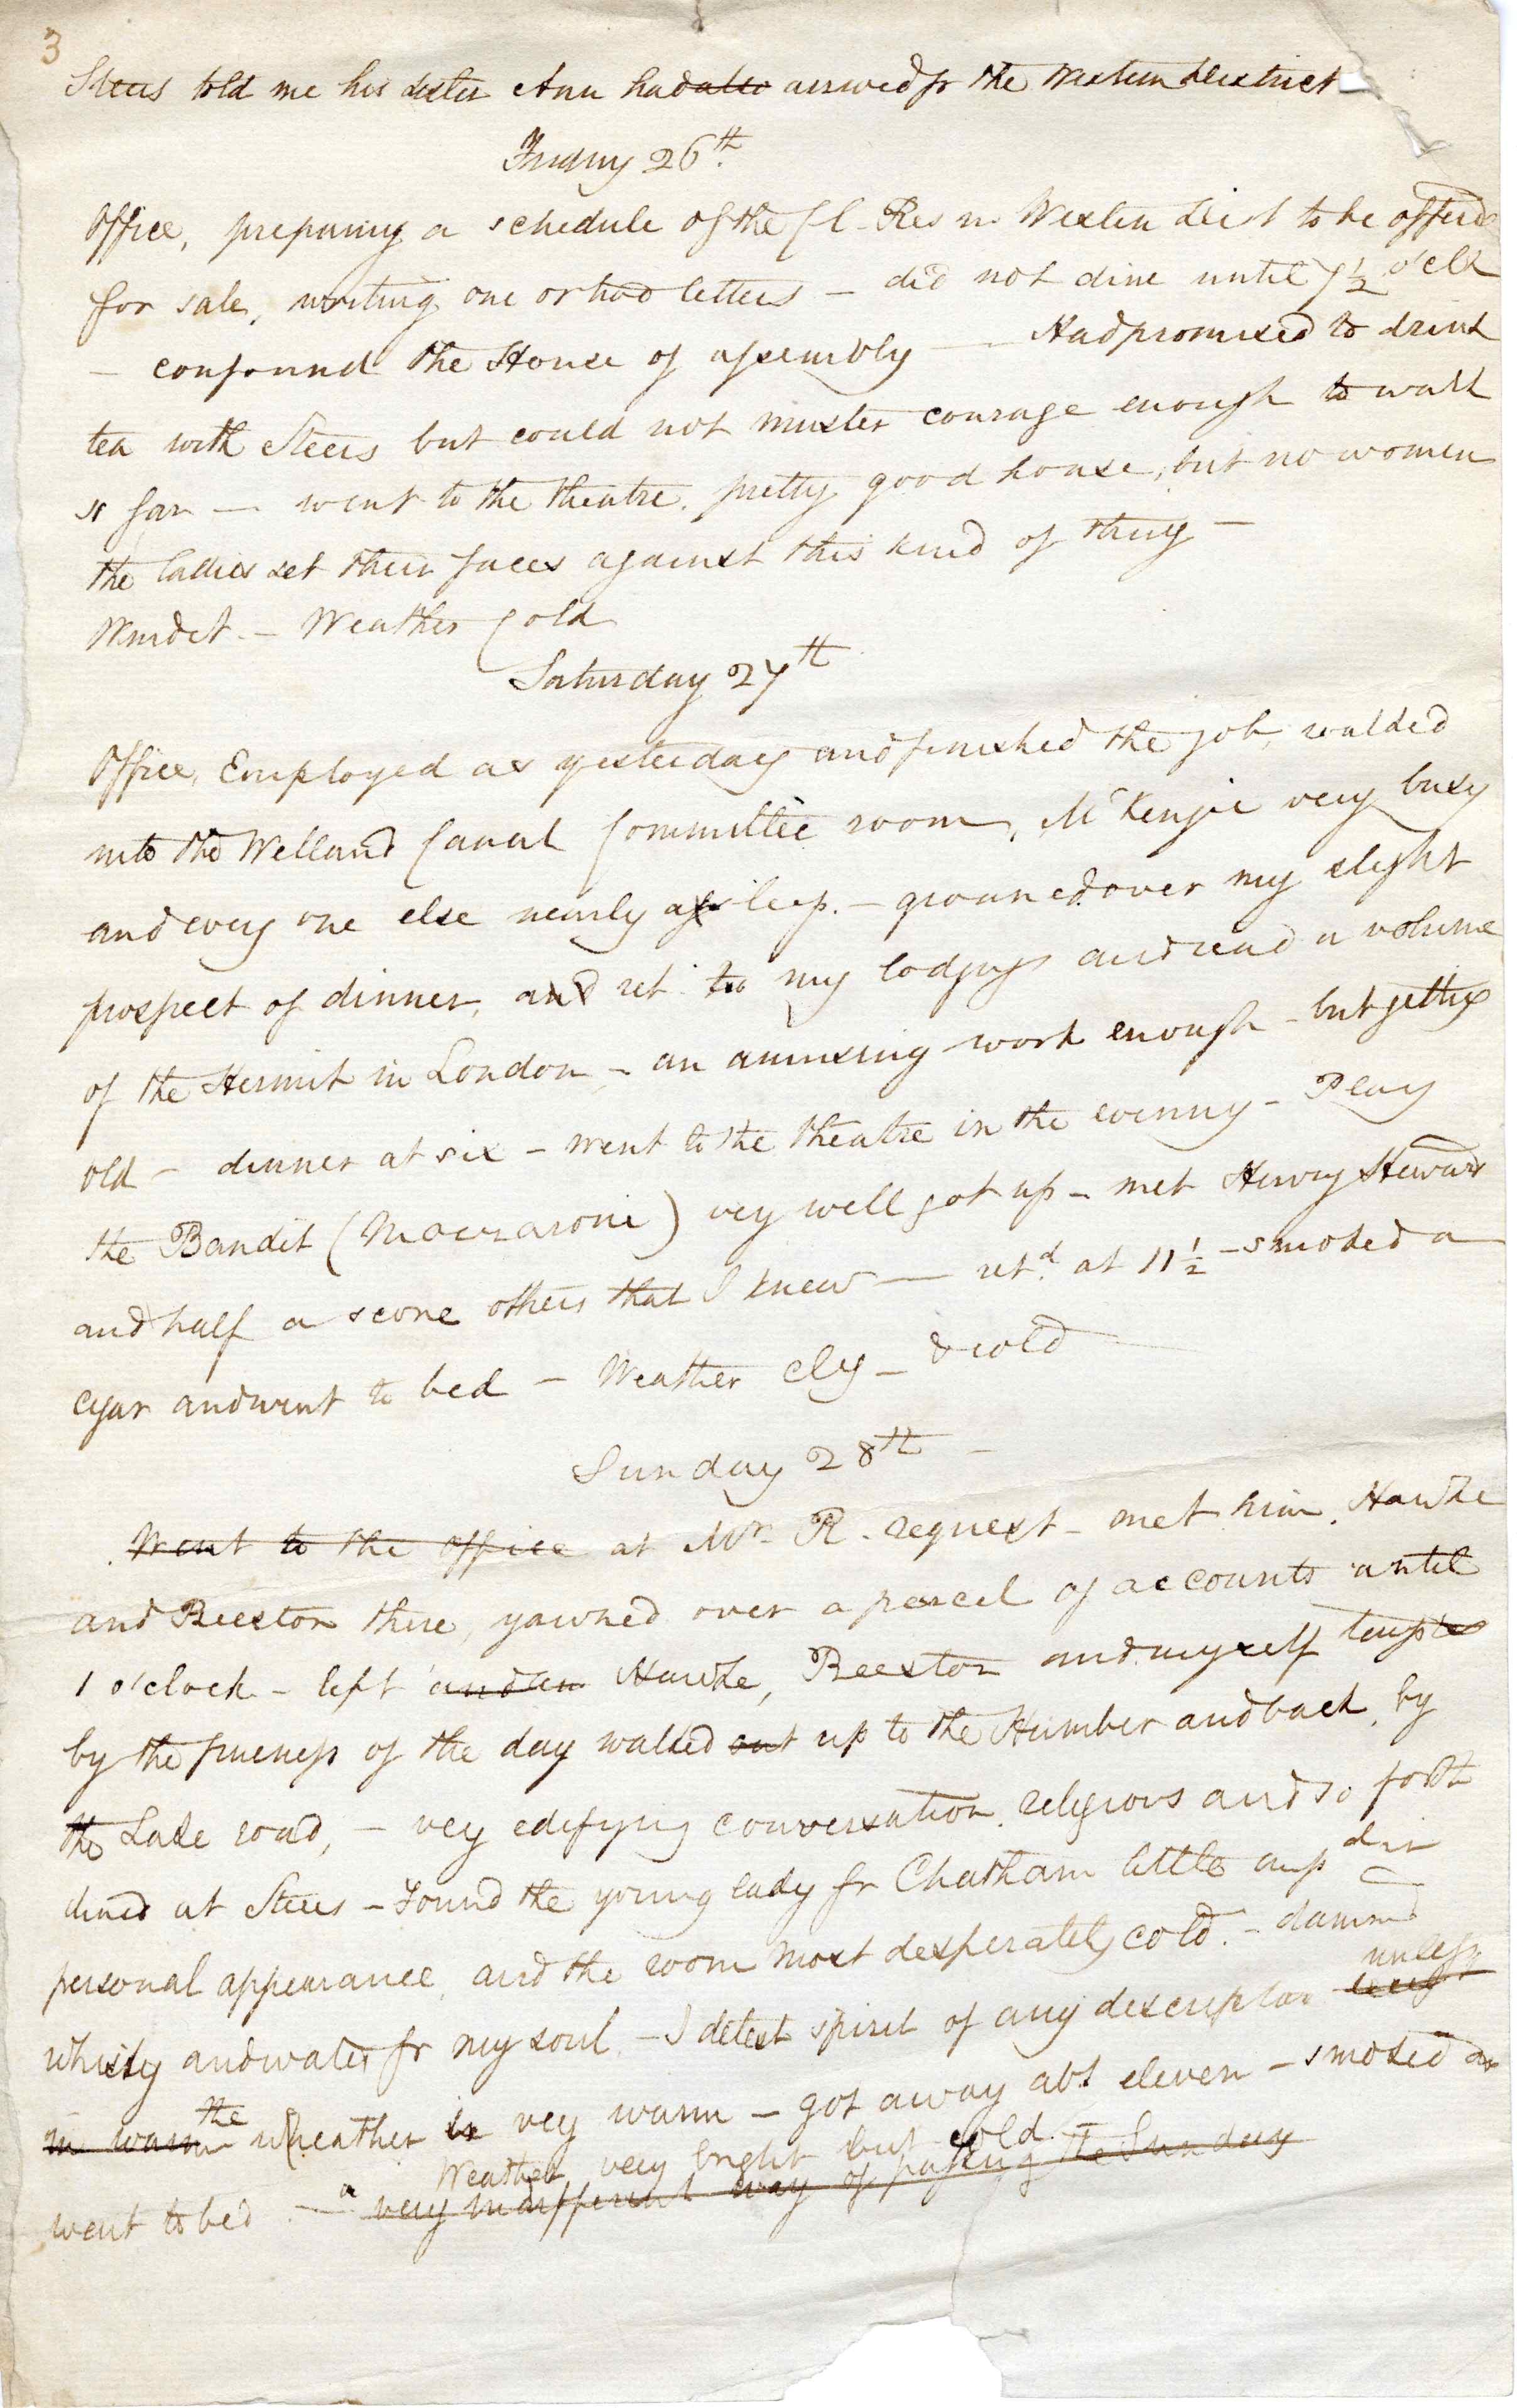 3
Steers told me his sister Ann had also arrived fr the Western District
Friday 26th
Office, preparing a schedule of the Cl. Res in Western Dist to be offered
for sale, writing one or two letters – did not dine until 7½ o'clk
– confound the House of assembly — Had promised to drink
tea with Steers but could not muster courage enough to walk
so far — went to the theatre, pretty good house, but no women
the ladies set their faces against this kind of thing –
– Weather Cold
Saturday 27th
Office, Employed as yesterday and finished the job, walked
into the Welland Canal Committee room, McKenzie very busy
and every one else nearly asleep. – groaned over my slight
prospect of dinner, and ret to my lodgings and read a volume
of the Hermit in London – an amusing work enough – but getting
old – dinner at six – went to the theatre in the evening – Play
the Bandit (Mazzaroni) very well got up – met Henry Steward
and half a score others that I knew — retd. at 11½ – smoked a
cigar and went to bed – Weather cly – & cold
Sunday 28th –
Went to the office at Mr. R. request – met him, Hawke
and Beeston there, yawned over a parcel of accounts until
1 o'clock – left Hawke, Beeston and myself
by the fineness of the day walked out up to the Humber and back, by
the Lake road, – very edifying conversation, religious and so forth
dined at Steers – Found the young lady fr Chatham little
personal appearance, and the room most desperately cold. – damned
whisky and water fr my soul – I detest spirit of any description
unless
in warm the wheather is very warm – got away abt eleven – smoked &
Weather very bright but cold.
went to bed. — a very indifferent way of passing the Sunday